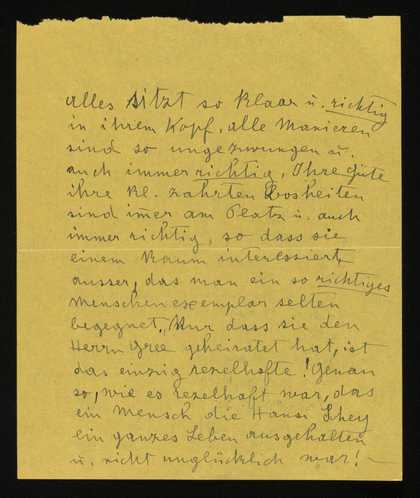 alles sitzt so klaar u. richtig
in ihrem Kopf, alle Manieren
sind so ungezwungen u.
auch immer richtig, Ihre Güte
ihre kl. zahrten Bosheiten
sind imer am Platz u. auch
immer richtig, so dass sie
einem kaum interessiert
ausser, das man ein so richtiges
Menschenexemplar selten
begegnet. Nur dass sie den
Herrn Gree geheiratet hat, ist
das einzig rezelhafte! Genau
so, wie es rezelhaft war, das
ein Mensch die Hansi Schey
ein ganzes Leben ausgehalten
u. nicht unglücklich war! –